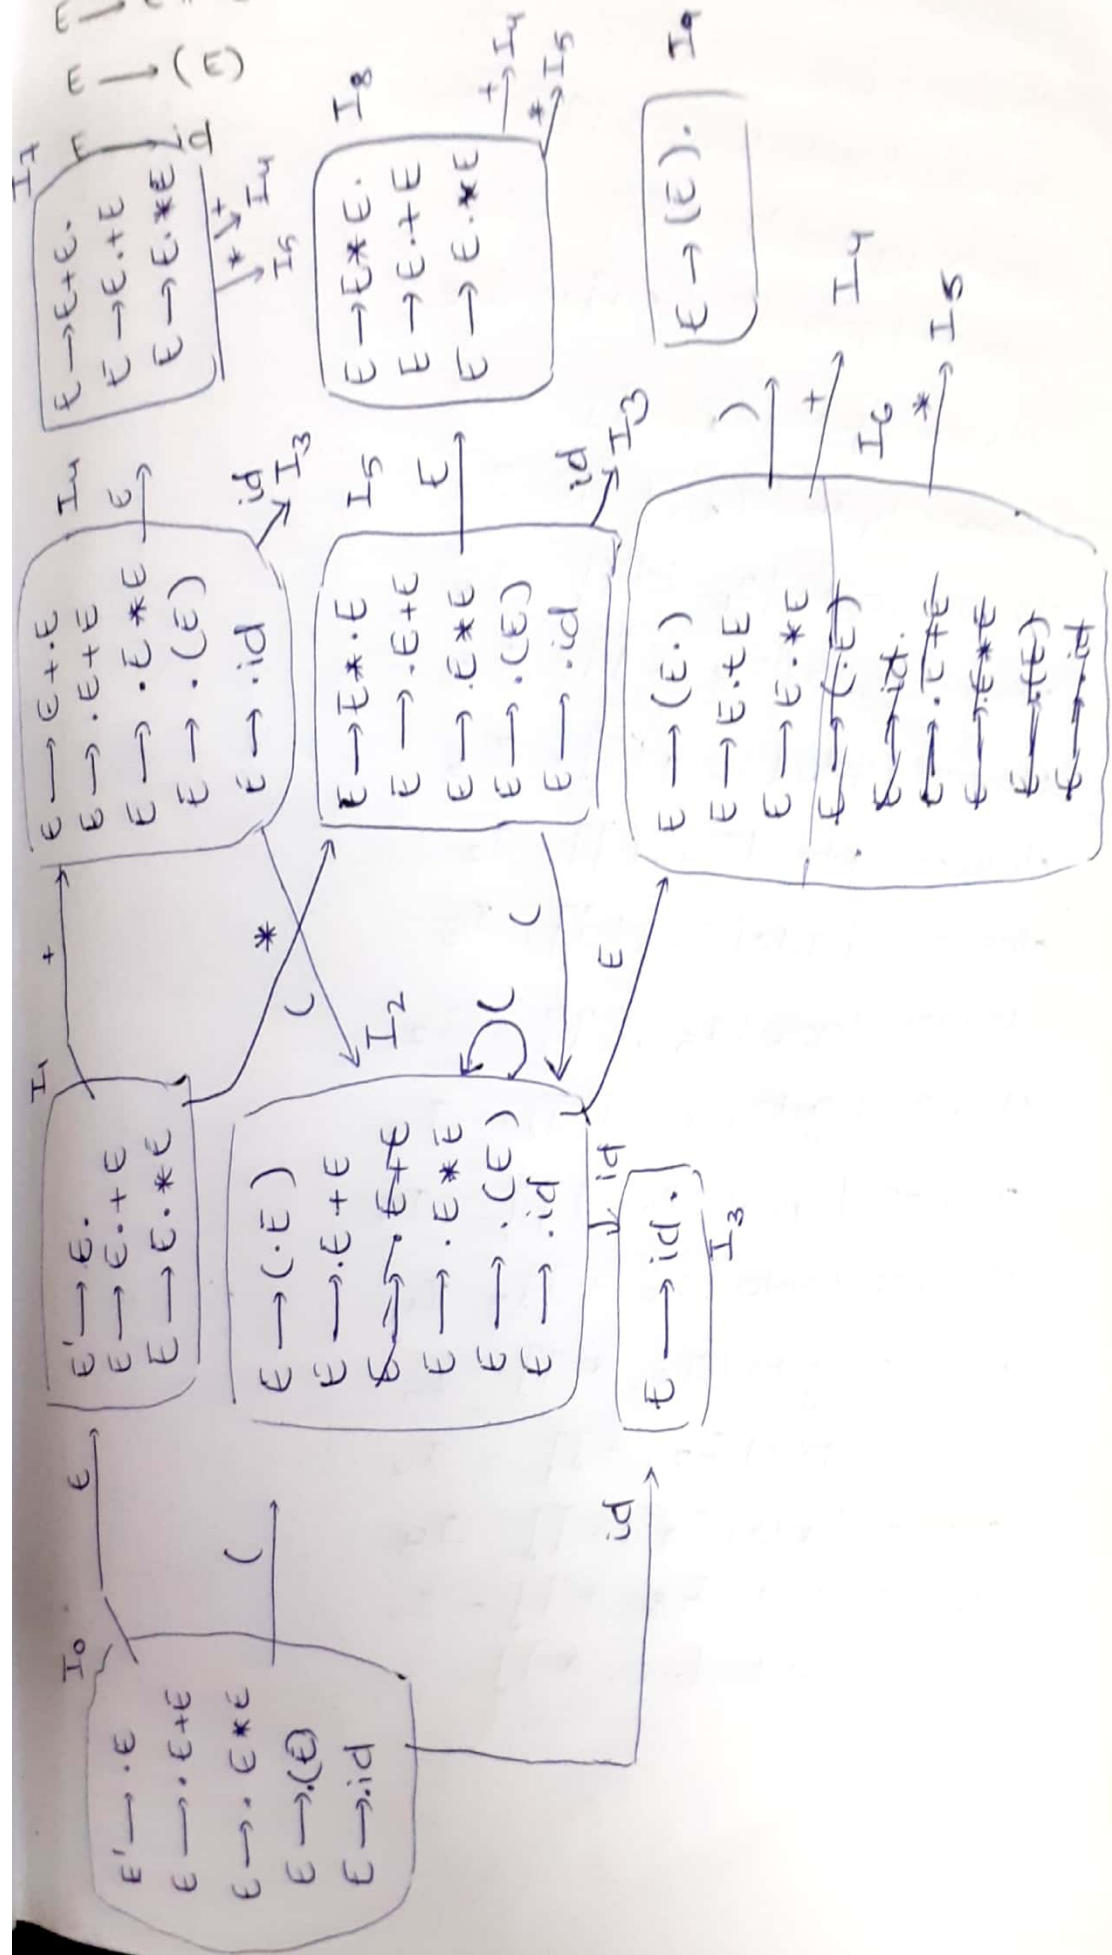 E → (E)
E → id
I0
E' → .E
E → .E+E
E → .E*E
E → .(E)
E → .id
E
(
id
I1
E' → E.
E → E.+E
E → E.*E
+
*
I2
E → (.E)
E → .E+E
E → .E+E
E → .E*E
E → .(E)
E → .id
(
id
E
E → id.
I3
I4
E → E+.E
E → .E+E
E → .E*E
E → .(E)
E → .id
E
(
id
I3
I5
E → E*.E
E → .E+E
E → .E*E
E → .(E)
E → .id
E
(
id
I3
I6
E → (E.)
E → E.+E
E → E.*E
E → (.E)
E → id.
E → .E+E
E → .E*E
E → .(E)
E → .id
)
+
I4
*
I5
I7
E → E+E.
E → E.+E
E → E.*E
+
I4
*
I5
I8
E → E*E.
E → E.+E
E → E.*E
+
I4
*
I5
I9
E → (E).